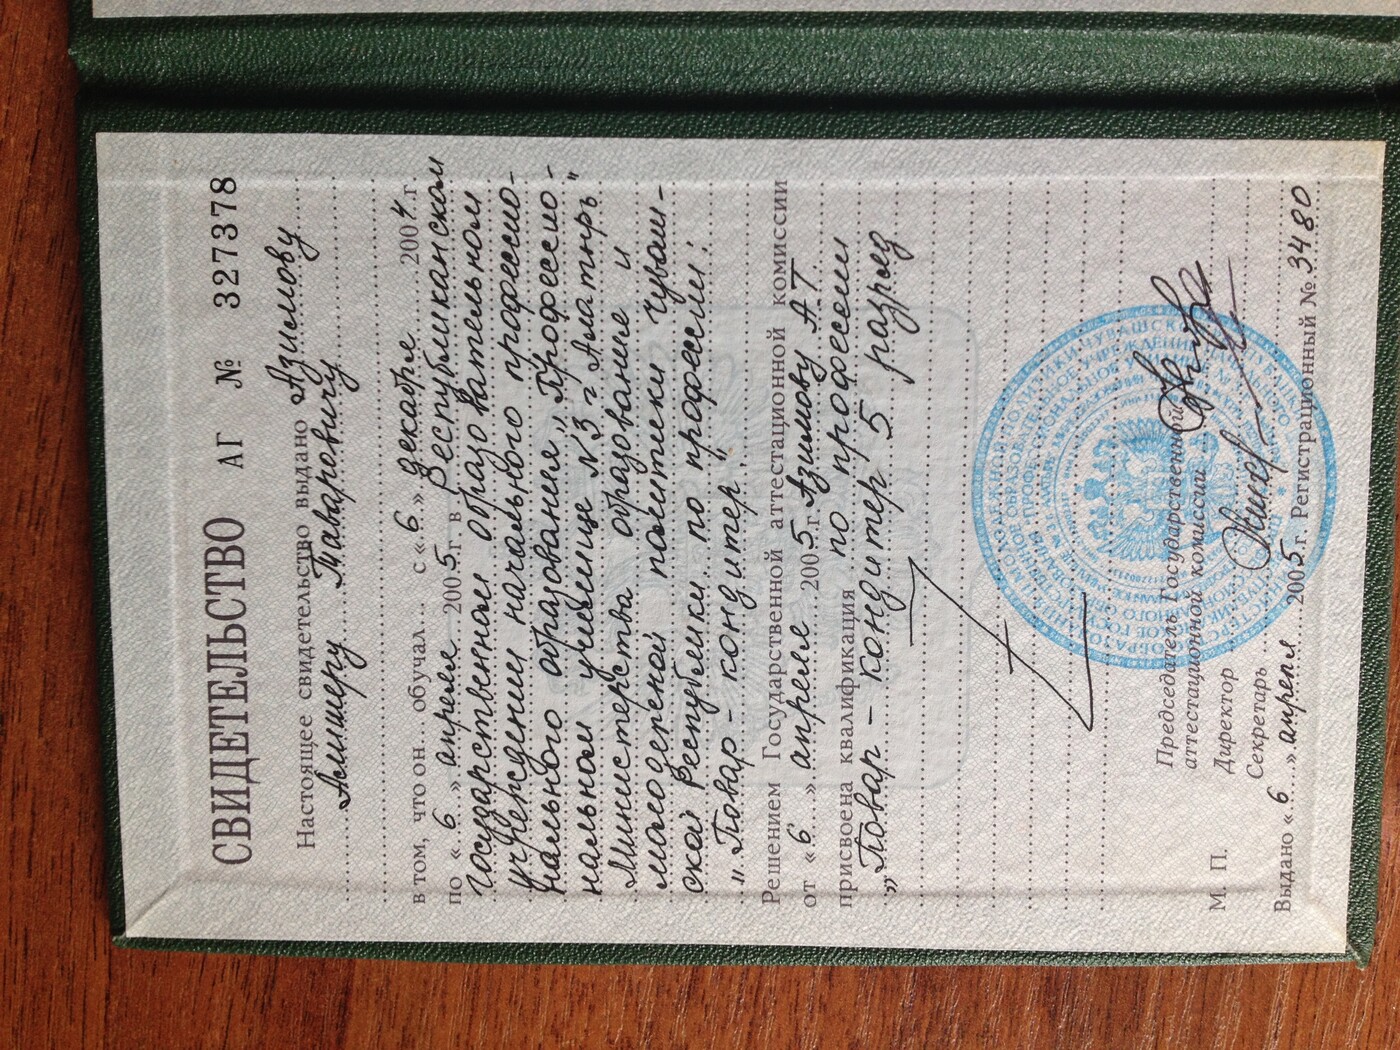 СВИДЕТЕЛЬСТВО АГ № 327378
Настоящее свидетельство выдано Азимову
Алишеру Таваровичу
в том, что он обучал с «6» декабре 2004 г.
по «6» апреле 2005 г. в Республиканском
государственном образовательном
учреждении начального професcио-
нального образования „Професcио-
нальном училище №3 г Алатырь"
Министерства образование и
молодежной политики Чуваш-
ской Республики по профессии:
„Повар-кондитер"
Решением Государственной аттестационной комиссии
от «6» апреле 2005 г. Азимову А.Т
присвоена квалификация по професеии
„Повар-кондитер 5 разряд
Председатель Государственной
аттестационной комиссии
М. П. Директор
Секретарь
Выдано «6» апрепя 2005 г. Регистрационный № 3480